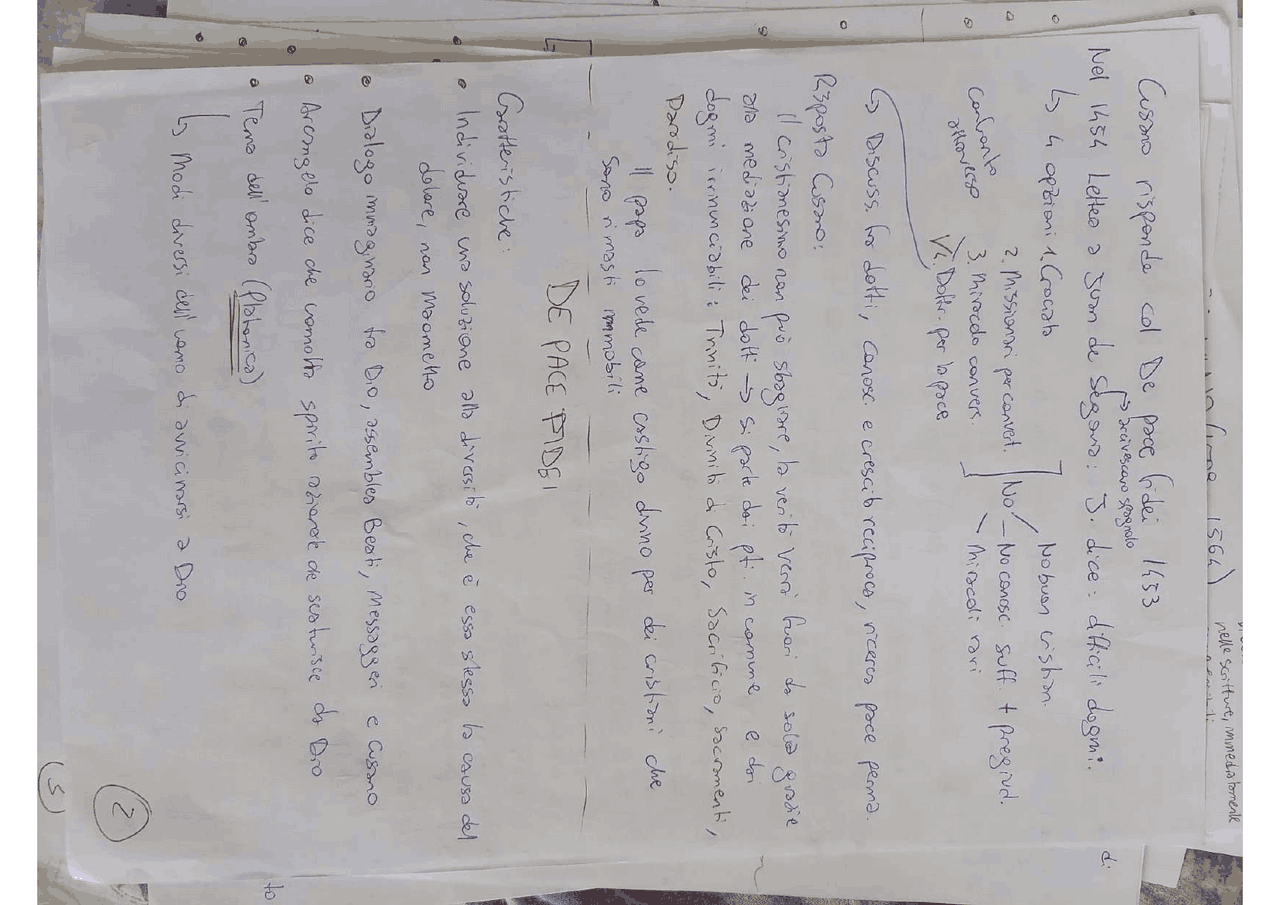 Cusano risponde col De pace fidei 1453
→ arcivescovo spagnolo
Nel 1454 Lettea a Juan de Segovia: J. dice: difficili dogmi.
↳ 4 opzioni 1. Crociata
2. Missionari per convert.
3. Miracolo convers.
V4. Dottr. per la pace
confronto
attraverso
No
No buon cristian.
No conosc. suff. + pregiud.
Miracoli rari
↳ Discuss. fra dotti, conosc. e crescita reciproca, ricerca pace perma.
Risposta Cusano:
Il cristianesimo non può sbagliare, la verità verrà fuori da sola grazie
alla mediazione dei dotti → si parte dai pti. in comune e dai
dogmi irrinunciabili: Trinità, Divinità di Cristo, Sacrificio, Sacramenti,
Paradiso.
Il papa lo vede come castigo divino per dei cristiani che
sono rimasti immobili
DE PACE FIDEI
Caratteristiche:
• Individuare una soluzione alla diversità, che è essa stessa la causa del
dolore, non Maometto
• Dialogo immaginario tra Dio, assemblea Beati, Messaggeri e Cusano
• Arcangelo dice che l'uomo ha spirito razionale che scaturisce da Dio
• Tema dell'ombra (Platonica)
↳ Modi diversi dell'uomo di avvicinarsi a Dio
2
(5)
1564)
nelle scritture, immediatamente
di
to